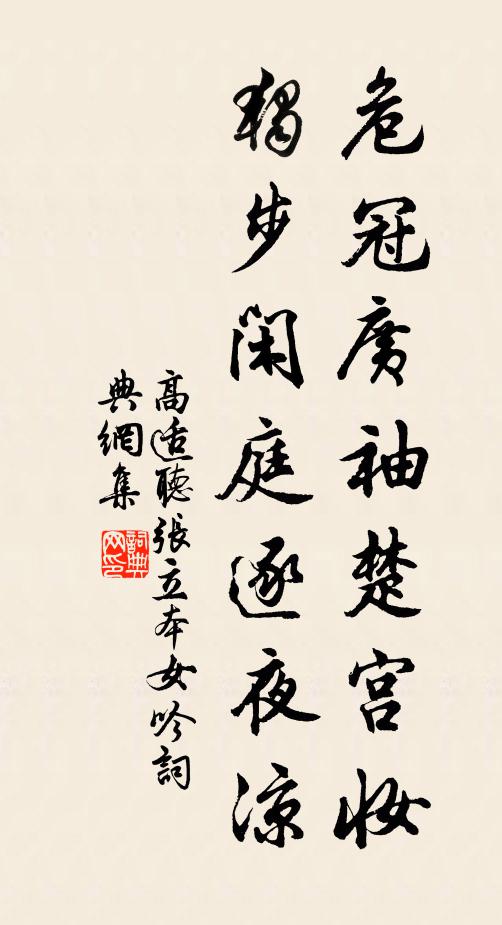 危冠廣袖楚宮妝
獨步閑庭逐夜涼
高适聽張立本女吟詞
典網集
詞典
网印